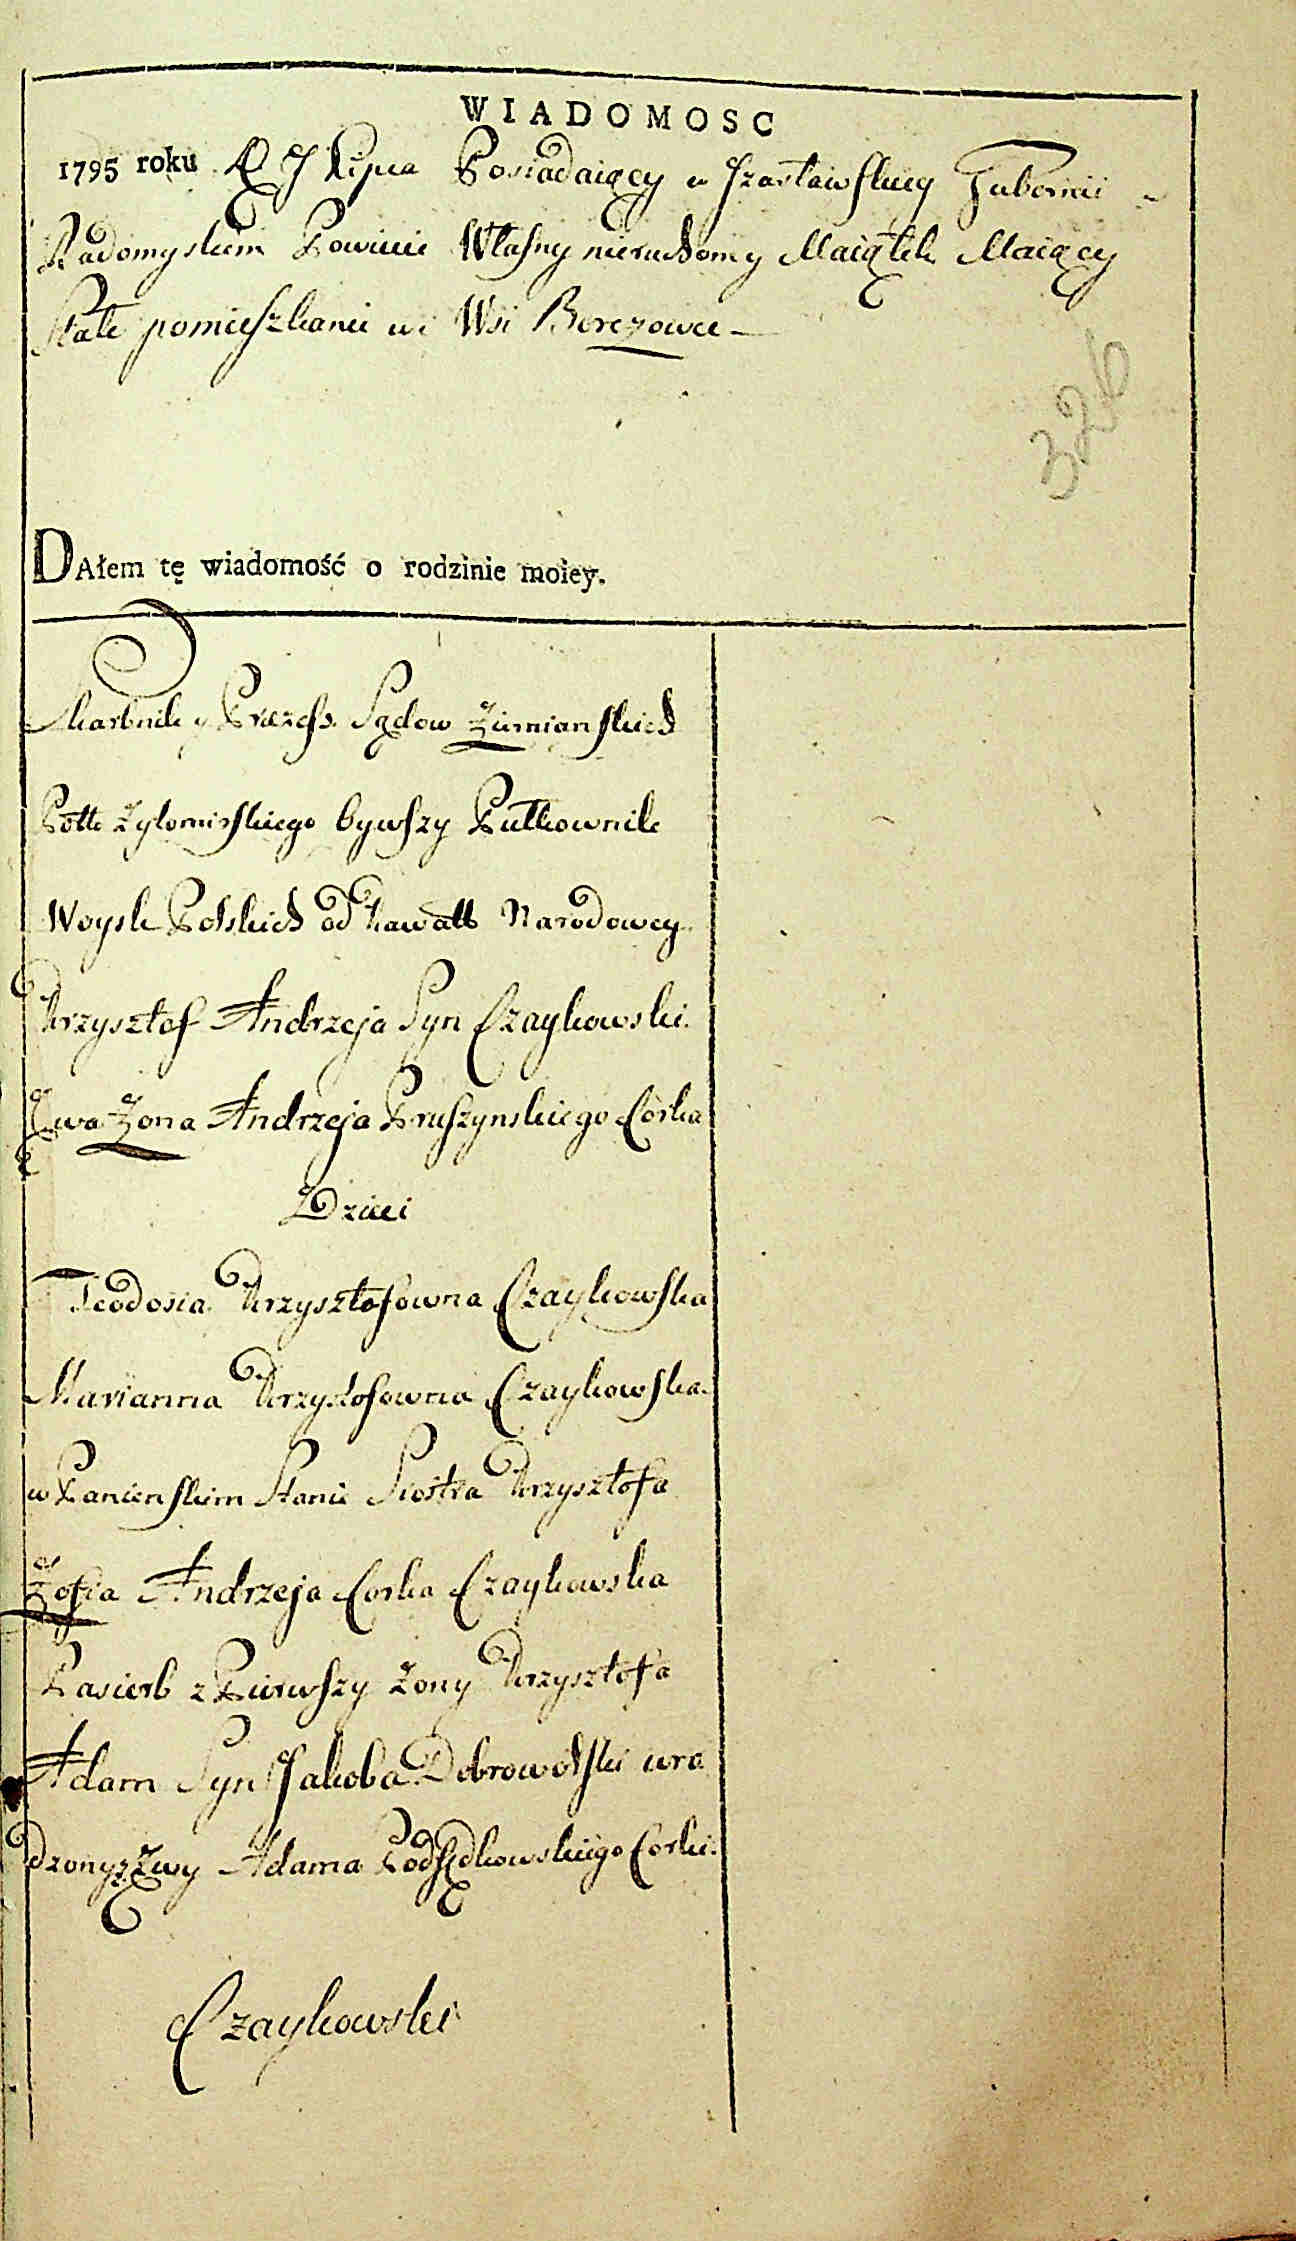 WIADOMOSC
1795 roku D 7 Lipca Posiadaiący w Jzasławskiey Gubernii w
Radomyskim Powiecie Własny nieruchomy Maiątek Maiący
Stałe pomieszkanie we Wsi Berezowce
326
DAłem tę wiadomość o rodzinie moiey.
Skarbnik y Prezess Sądow Ziemianskich
Pttu Zytomirskiego bywszy Pułkownik
Woysk Polskich od Kawall Narodowey
Krzysztof Andrzeja Syn Czaykowski
Ewa Zona Andrzeja Pruszynskiego Córka
Dzieci
Teodosia Krzysztofowna Czaykowska
Marianna Krzysztofowna Czaykowska
w Panienskim Stanie Siostra Krzysztofa
Zofia Andrzeja Corka Czaykowska
Pasierb z Pierwszy Zony Krzysztofa
Adam Syn Jakoba Dobrowolski uro
dzony z Ewy Adama Podsędkowskiego Corki
Czaykowski